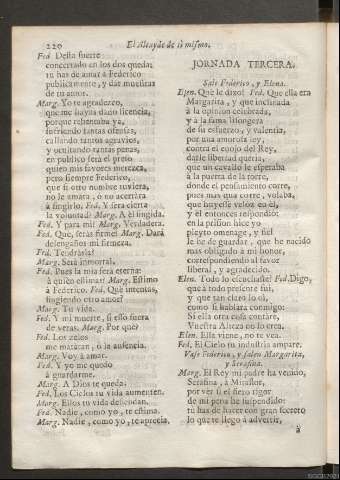 220
El Alcayde de sì mismo.
Fed. Desta suerte
concertado en los dos queda;
tu has de amar à Federico
publicamente, y dar muestras
de tu amor.
Marg. Yo te agradezco,
que me hayas dado licencia,
porque rebentaba ya,
sufriendo tantas ofensas,
callando tantos agravios,
y ocultando tantas penas,
en publico serà el preso
quien mis favores merezca,
pero siempre Federico,
que si otro nombre tuviera,
no le amàra, ò no acertàra
à fingirlo. Fed. Y serà cierta
la voluntad? Marg. A èl fingida.
Fed. Y para mì? Marg. Verdadera.
Fed. Que, seràs firme? Marg. Darà
desengaños mi firmeza.
Fed. Tendràsla?
Marg. Serà inmortal.
Fed. Pues la mia serà eterna:
à quien estimas? Marg. Estimo
à Federico. Fed. Què intentas,
fingiendo otro amor?
Marg. Tu vida.
Fed. Y mi muerte, si esso fuera
de veras. Marg. Por què?
Fed. Los zelos
me mataràn, ò la ausencia.
Marg. Voy à amar.
Fed. Y yo me quedo
à guardarme.
Marg. A Dios te queda.
Fed. Los Cielos tu vida aumenten.
Marg. Ellos tu vida defiendan.
Fed. Nadie, como yo, te estima.
Marg. Nadie, como yo, te aprecia.
JORNADA TERCERA.
Sale Federico, y Elena.
Elen. Què le dixo? Fed. Que ella era
Margarita, y que inclinada
à la opinion celebrada,
y à la fama lisongera
de su esfuerzo, y valentia,
por una amorosa ley,
contra el enojo del Rey,
darle libertad queria,
que un cavallo le esperaba
à la puerta de la torre,
donde el pensamiento corre,
pues mas que corre, volaba,
que huyesse veloz en èl,
y èl entonces respondiò:
en la prision hice yo
pleyto omenage, y fiel
le he de guardar, que he nacido
mas obligado à mi honor,
correspondiendo al favor
liberal, y agradecido.
Elen. Todo lo escuchaste? Fed. Digo,
que à todo presente fui,
y que tan claro lo oì,
como si hablàra conmigo:
Si ella otra cosa contàre,
Vuestra Alteza no lo crea.
Elen. Ella viene, no te vea.
Fed. El Cielo tu industria ampare.
Vase Federico, y salen Margarita,
y Serafina.
Marg. El Rey mi padre ha venido,
Serafina, à Miraflor,
por vèr si el fiero rigor
de mi pena he suspendido:
tù has de hacer con gran secreto
lo que te llego à advertir,
à